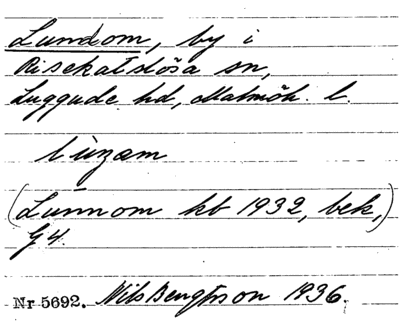 Lundom, by i
Risekatslösa sn,
Luggude hd, Malmöh. l.
lùnom
(Lunnom kb 1932, bek,)
G4.
Nr 5692. Nils Bengtsson 1936.